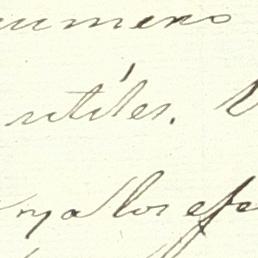 numero
utiles.
ya los efe